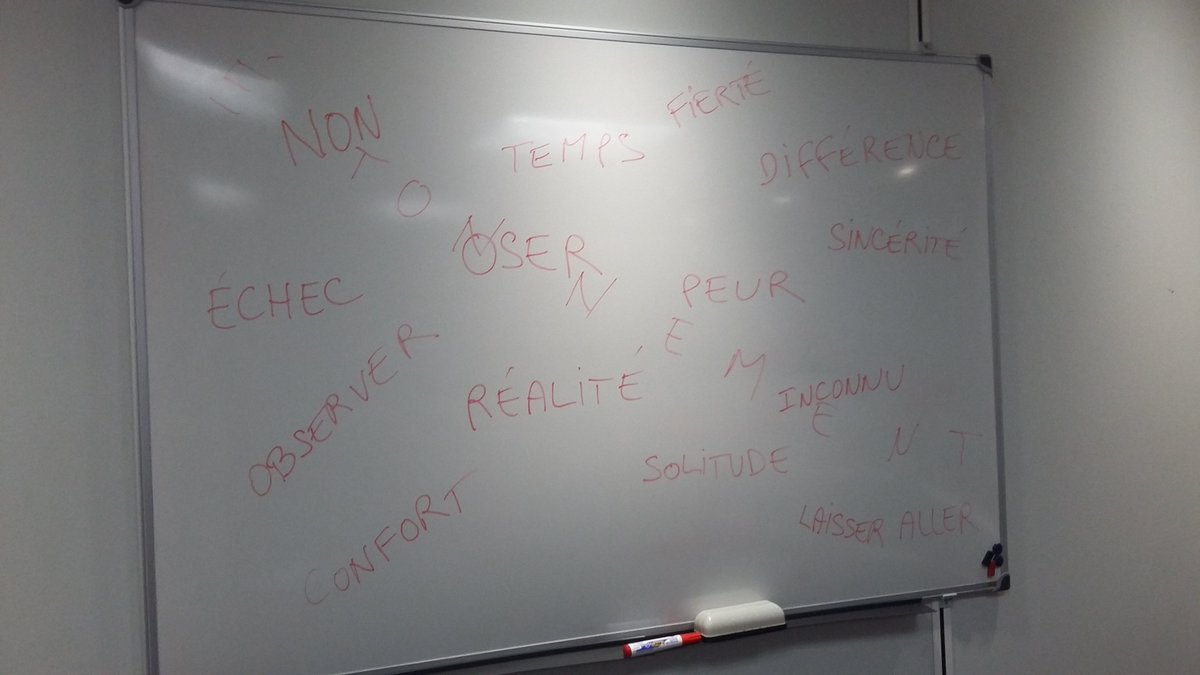 NON
TEMPS
FIERTÉ
DIFFÉRENCE
O
OSER
N
N
SINCÉRITÉ
ÉCHEC
PEUR
E
M
OBSERVER
RÉALITÉ
INCONNU
E
N
T
SOLITUDE
CONFORT
LAISSER ALLER